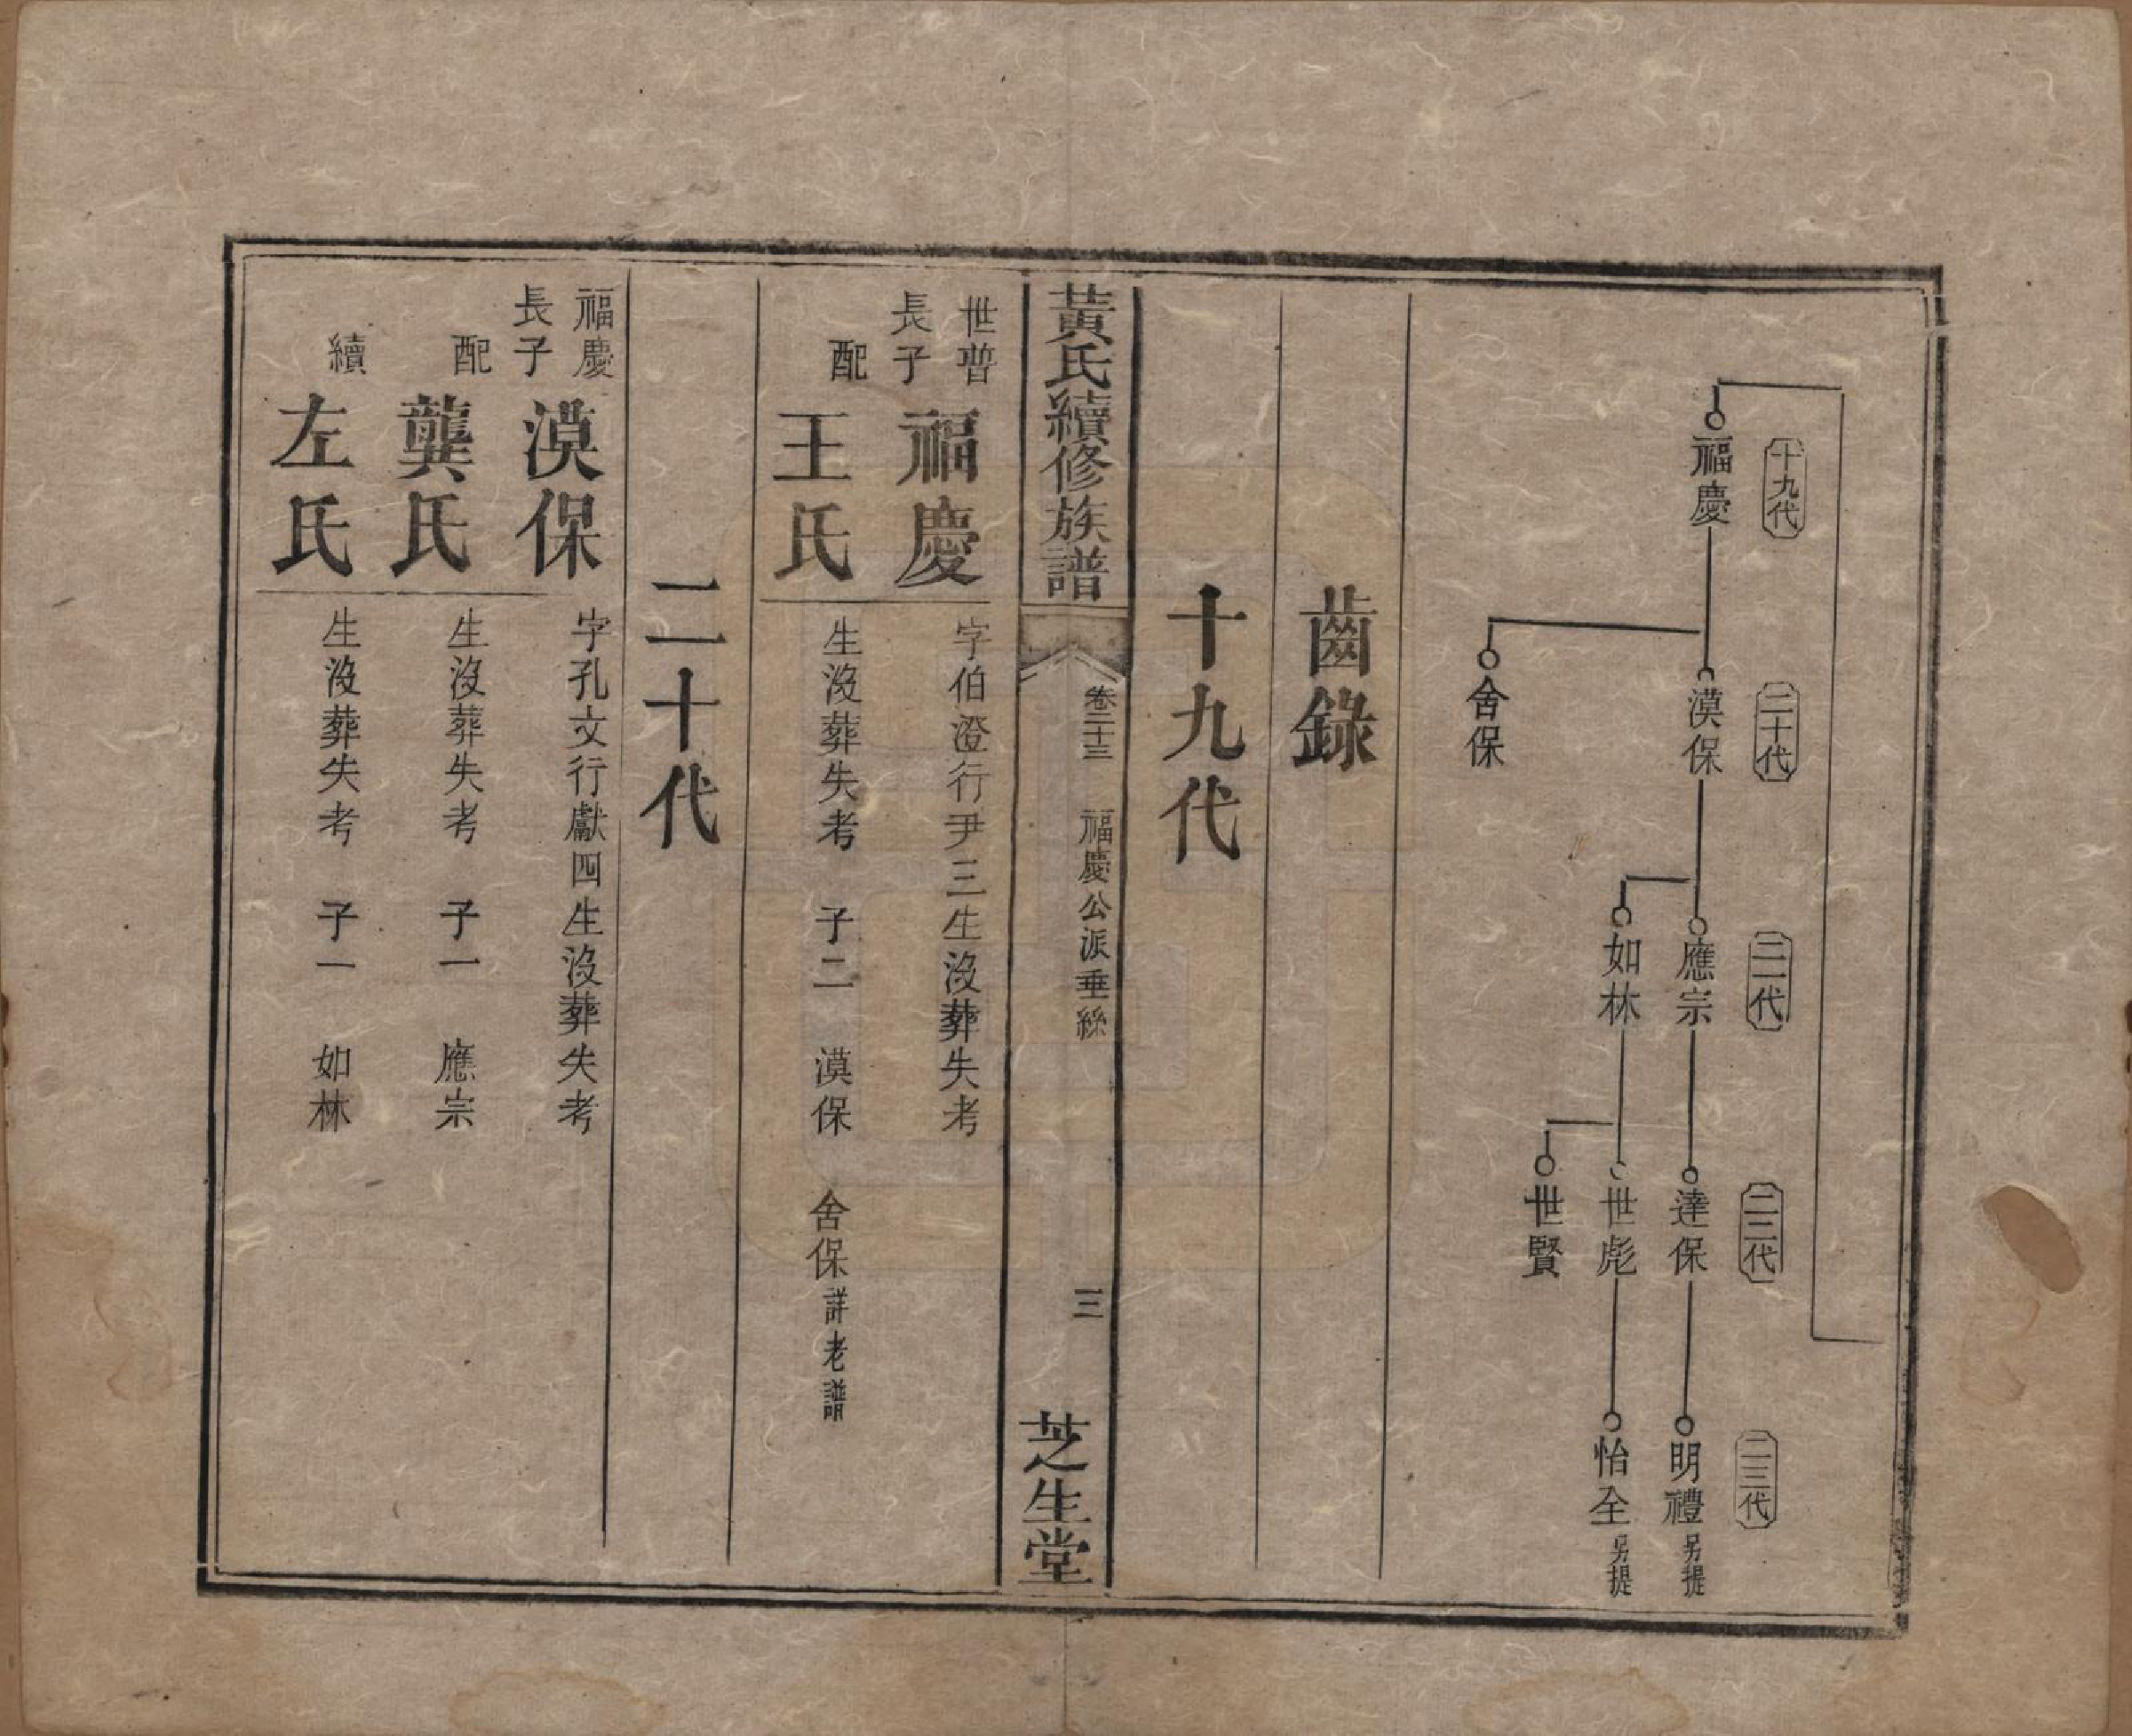 十九代
福慶
二十代
漠保
舍保
二一代
應宗
如林
二二代
達保
世彪
世賢
二三代
明禮另提
怡全另提
齒錄
十九代
黃氏續修族譜
卷二十三
福慶公派垂絲
三
芝生堂
世普
長子
福慶
字伯澄行尹三生沒葬失考
配
王氏
生沒葬失考 子二 漠保 舍保詳老譜
二十代
福慶
長子
漠保
字孔文行獻四生沒葬失考
配
龔氏
生沒葬失考 子一 應宗
續
左氏
生沒葬失考 子一 如林